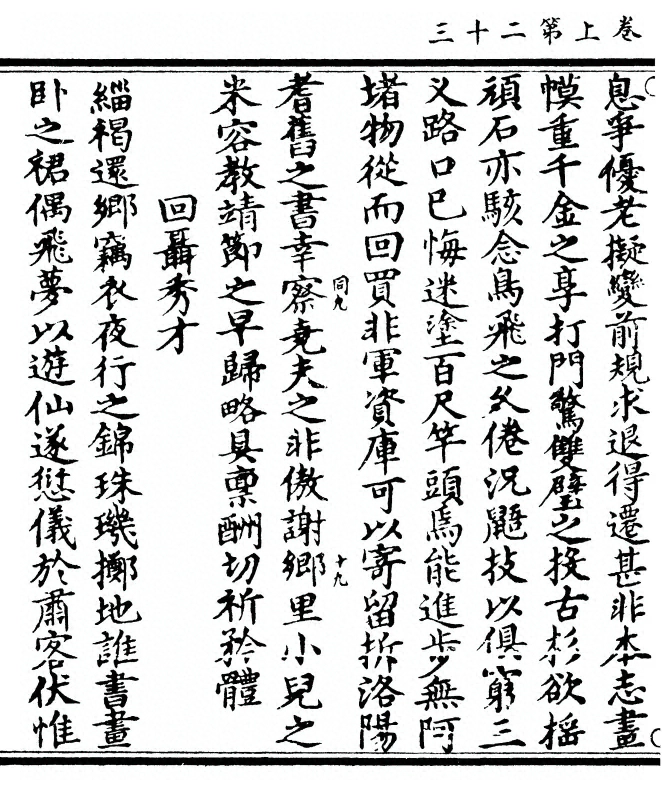 卷上第二十三
息爭優老擬變前規求退得遷甚非本志畫
幙重千金之享打門驚雙璧之投古杉欲楅
頑石亦駭念鳥飛之久倦況鼯技以俱窮三
义路口巳悔迷塗百尺竿頭焉能進步無阿
堵物從而回買非軍資庫可以寄留折洛陽
耆舊之書幸察堯夫之非傲謝鄉里小兒之
同九
十九
米容教靖節之早歸略具稟酬切祈矜體
回聶秀才
緇褐還鄉竊衣夜行之錦珠璣擲地誰書畫
卧之裙偶飛夢以遊仙遂愆儀於肅客伏惟